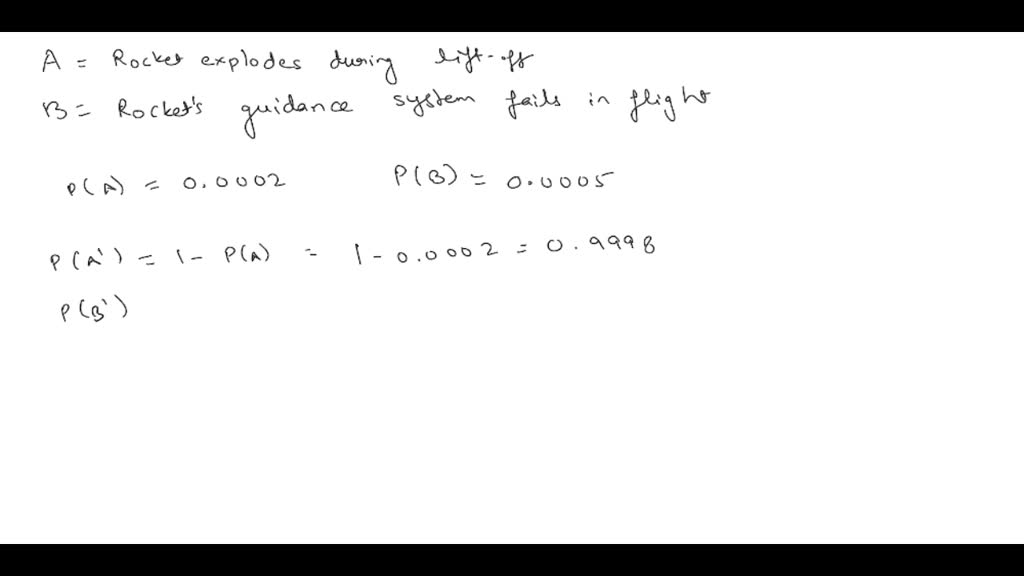 A = Rocket explodes during lift-off
B = Rocket's guidance system fails in flight
P(A) = 0.0002 P(B) = 0.0005
P(A') = 1 - P(A) = 1 - 0.0002 = 0.9998
P(B')